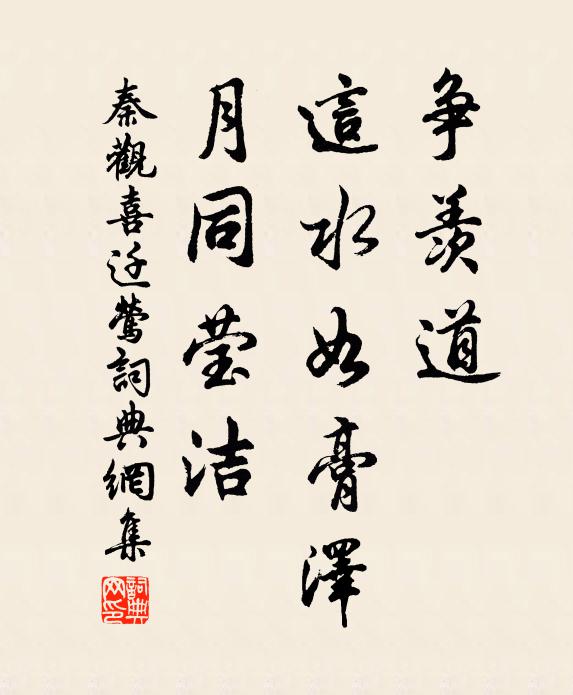 争羡道
這水如膏澤
月同莹洁
秦觀喜迁鶯詞典網集
詞典网印